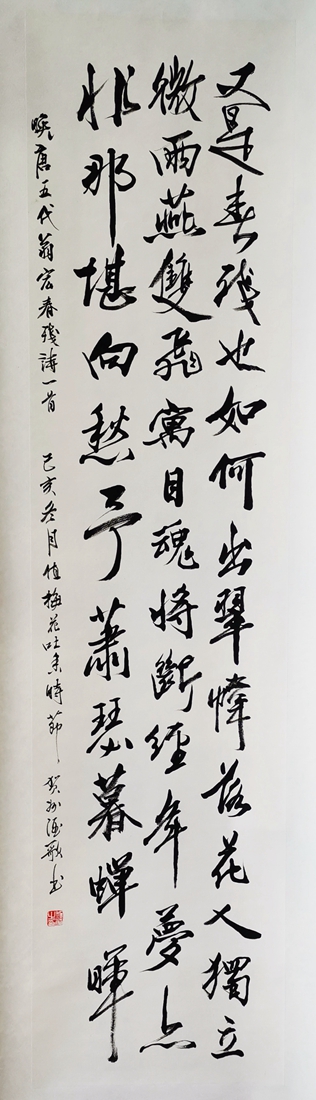 又是春殘也如何出翠幃落花人獨立
微雨燕雙飛寓目魂將斷經年夢亦
非那堪向愁蕭瑟暮蟬暉
晚唐五代翁宏春殘詩一首 己亥冬月值梅花吐香時節 賀州歌書